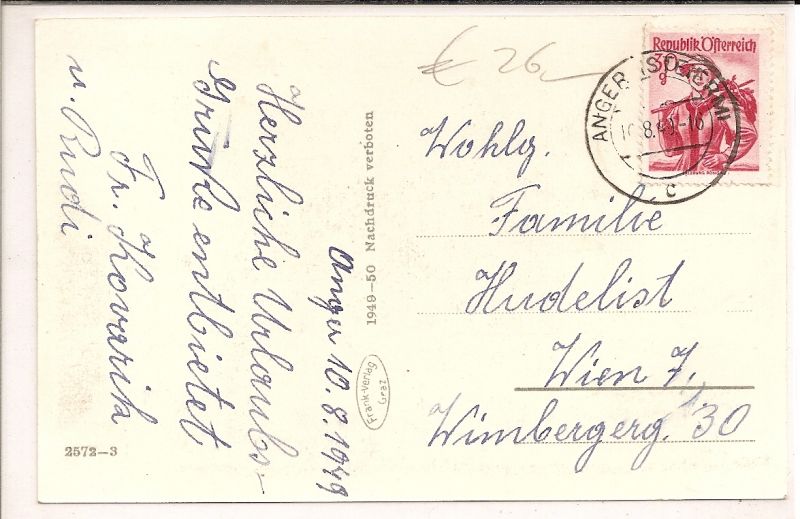 Anger 10.8.1949
Herzliche Urlaubs-
Grüße entbietet
Fr. Kovarik
u. Rudi
2572-3
1949-50 Nachdruck verboten
Frank-Verlag
Graz
€ 26,-
Republik Österreich
30
g
ANGER (STEIERM)
10.8.49-16
c
Wohlg.
Familie
Hudelist
Wien 7.
Wimbergerg. 30